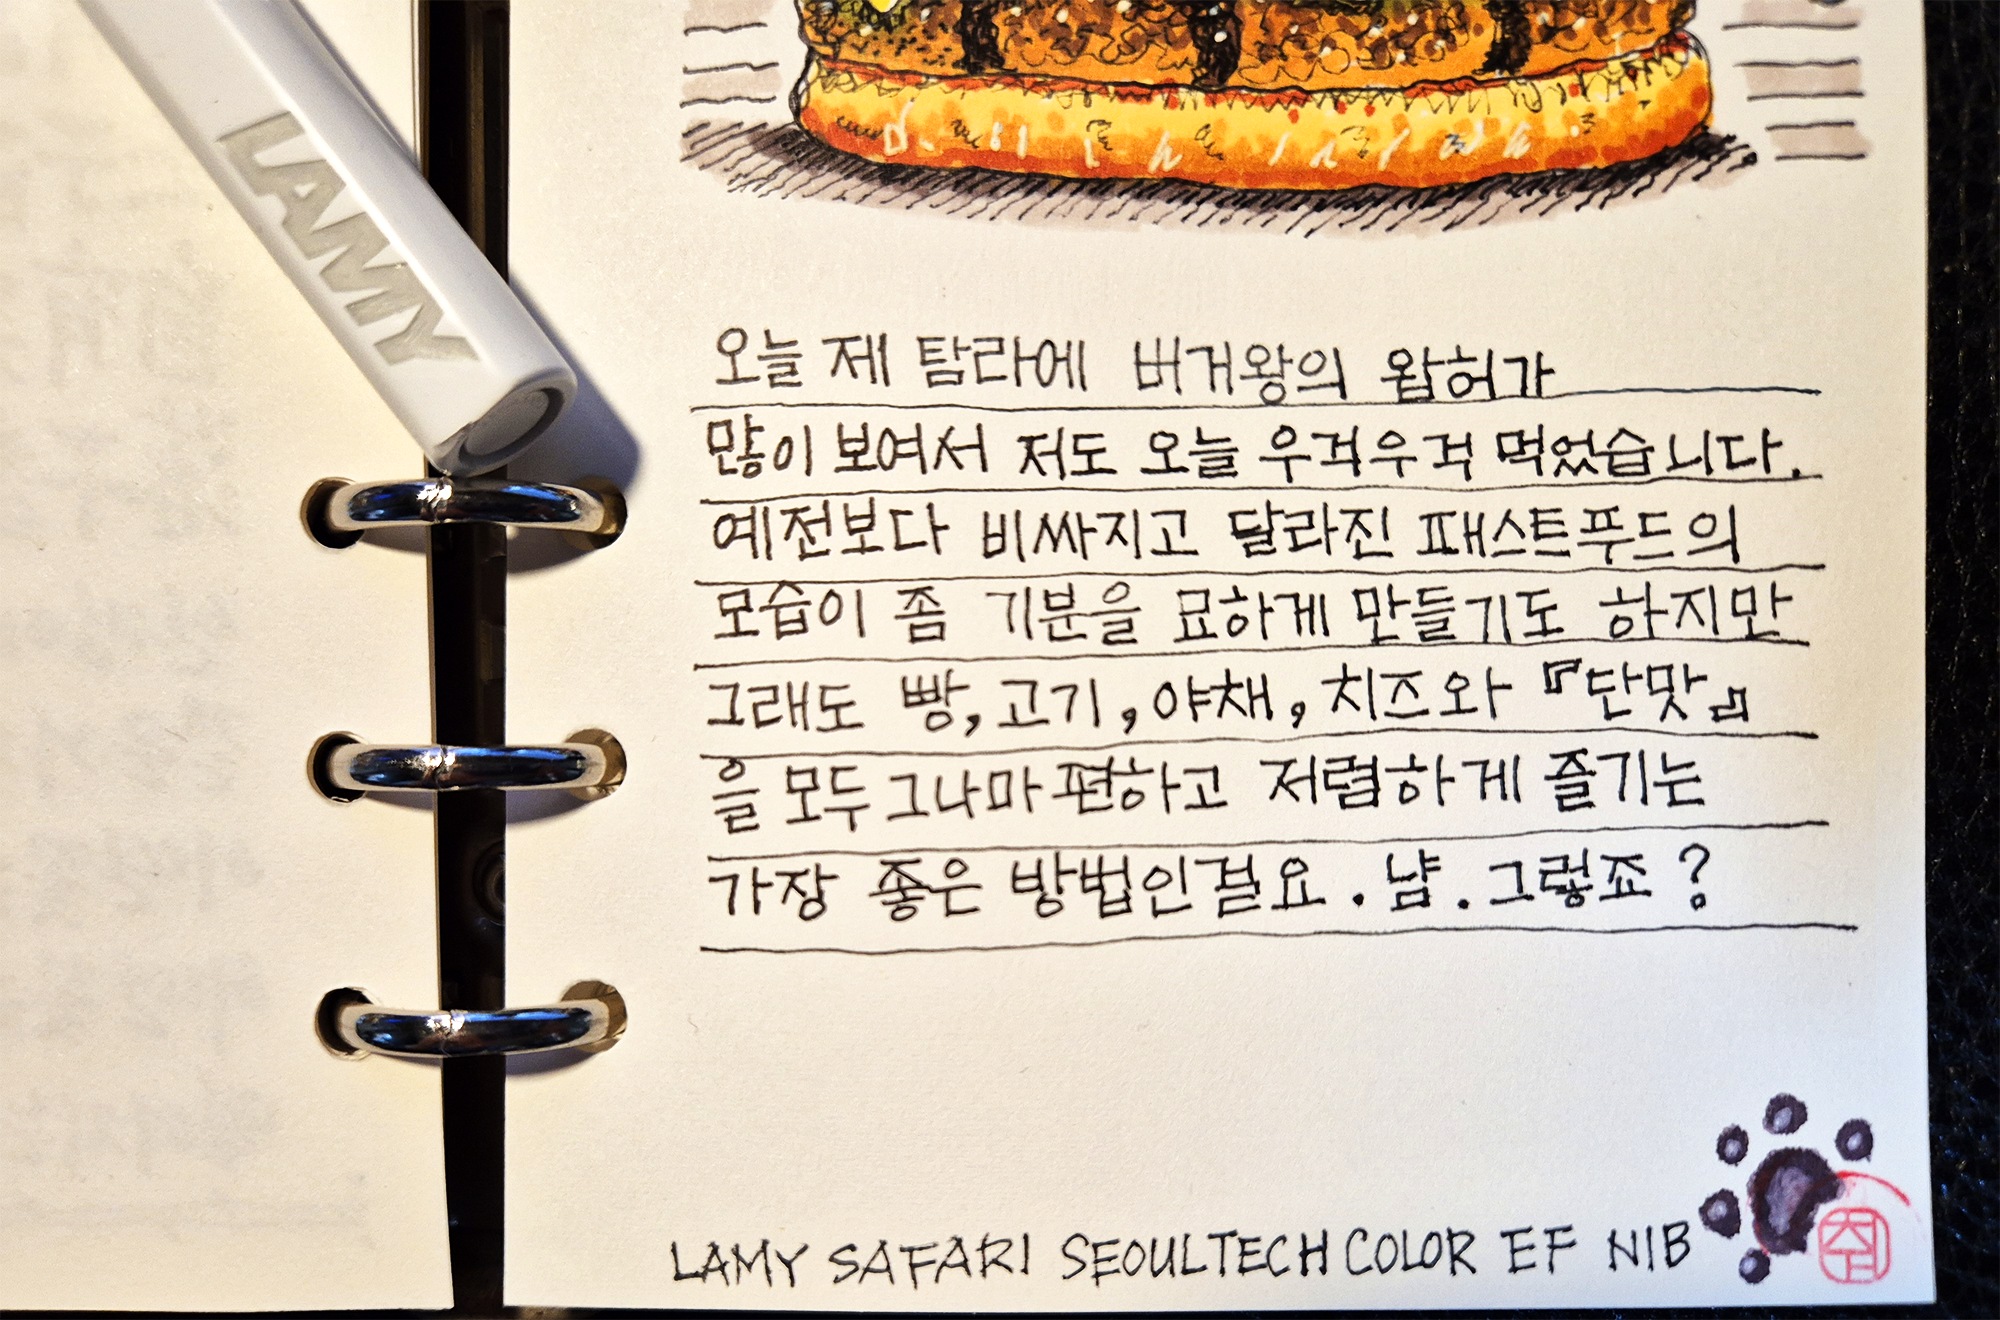 LAMY
오늘 제 탐라에 버거왕의 왑허가
많이 보여서 저도 오늘 우걱우걱 먹었습니다.
예전보다 비싸지고 달라진 패스트푸드의
모습이 좀 기분을 묘하게 만들기도 하지만
그래도 빵, 고기, 야채, 치즈와 『단맛』
을 모두 그나마 편하고 저렴하게 즐기는
가장 좋은 방법인걸요. 냠. 그렇죠?
LAMY SAFARI SEOULTECH COLOR EF NIB